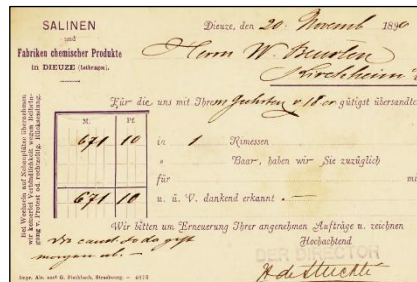 SALINEN
und
Fabriken chemischer Produkte
in DIEUZE (Lothringen).
Dieuze, den 20. Novemb 1890
Herrn W.
Kirchheim
Für die uns mit Ihrem v. 18 cr gütigst übersandte
M. Pf.
671 10 in 1 Rimessen
" Baar, haben wir Sie zuzüglich
für mit
671 10 u. ü. V. dankend erkannt.
Wir bitten um Erneuerung Ihrer angenehmen Aufträge u. zeichnen
Hochachtend
DER DIRECTOR
morgen ab.
Bei Wechseln auf Nebenplätze übernehmen
wir keinerlei Verbindlichkeit wegen
v. Protest od. rechtzeitig. Rücksendung.
Impr. Als. anct G. Fischbach, Strasbourg. — 4875